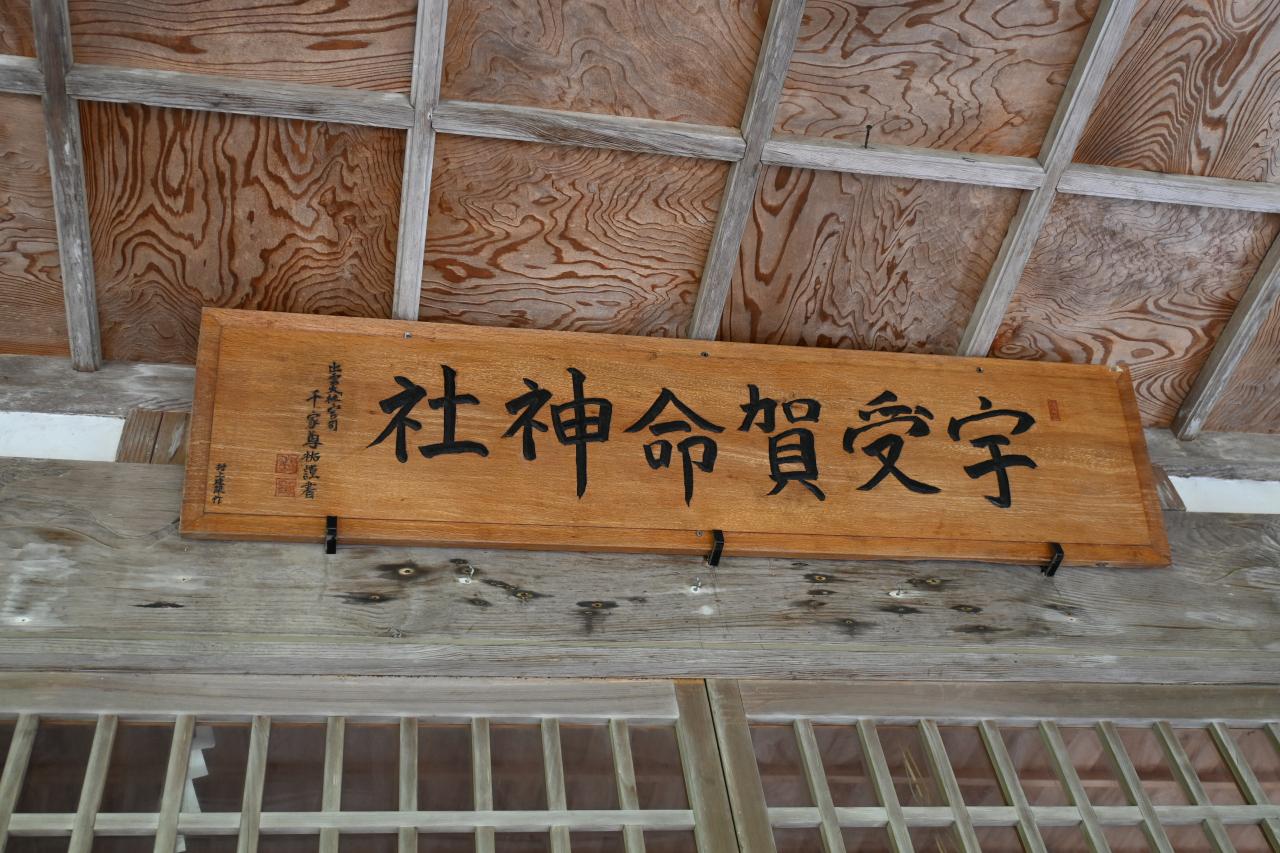 宇受賀命神社
出雲大社宮司
千家尊祐謹書